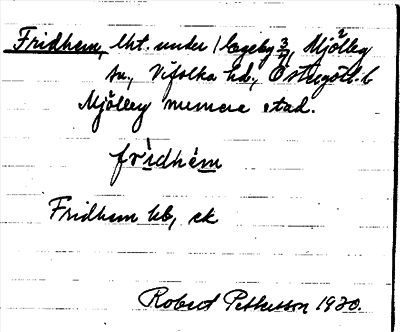 Fridhem, lht. under Hageby 3/71, Mjölby
sn., Vifolka hd., Östergötl. l.
Mjölby numera stad.
frìdhém
Fridhem hb, ek
Robert Pettersson 1920.